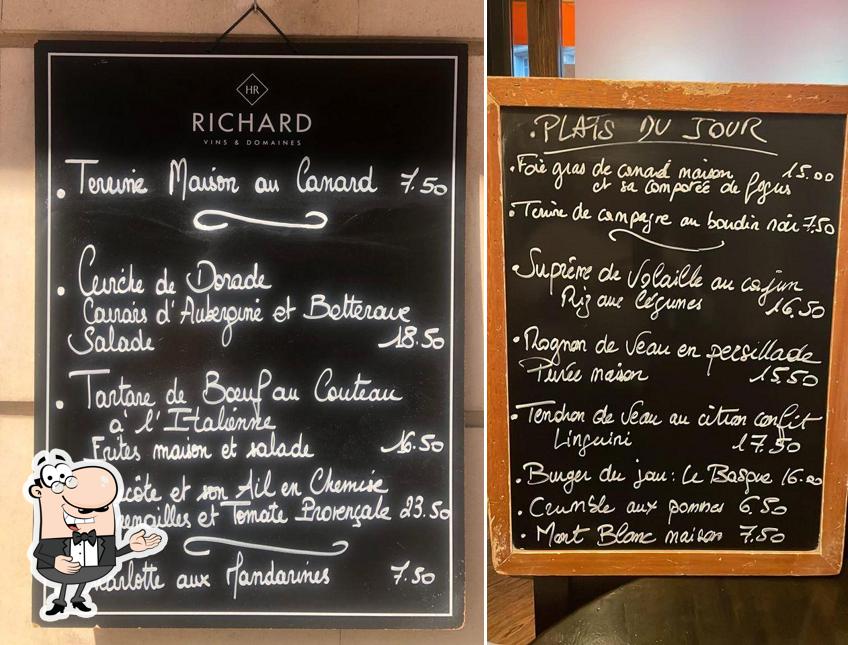 HR
RICHARD
VINS & DOMAINES
. Terrine Maison au Canard 7.50
. Ceviche de Dorade
Caviars d'Aubergine et Betterave
Salade 18.50
. Tartare de Bœuf au Couteau
à l'Italienne
Frites maison et salade 16.50
côte et son Ail en Chemise
enailles et Tomate Provençale 23.50
arlotte aux Mandarines 7.50
. PLATS DU JOUR
. Foie gras de canard maison 15.00
et sa compotée de figues
. Terrine de campagne au boudin noir 7.50
. Suprême de Volaille au cajun
Riz aux légumes 16.50
. Rognon de Veau en persillade
Purée maison 15.50
. Tendron de Veau au citron confit
Linguini 17.50
. Burger du jour : Le Basque 16.00
. Crumble aux pommes 6.50
. Mont Blanc maison 7.50